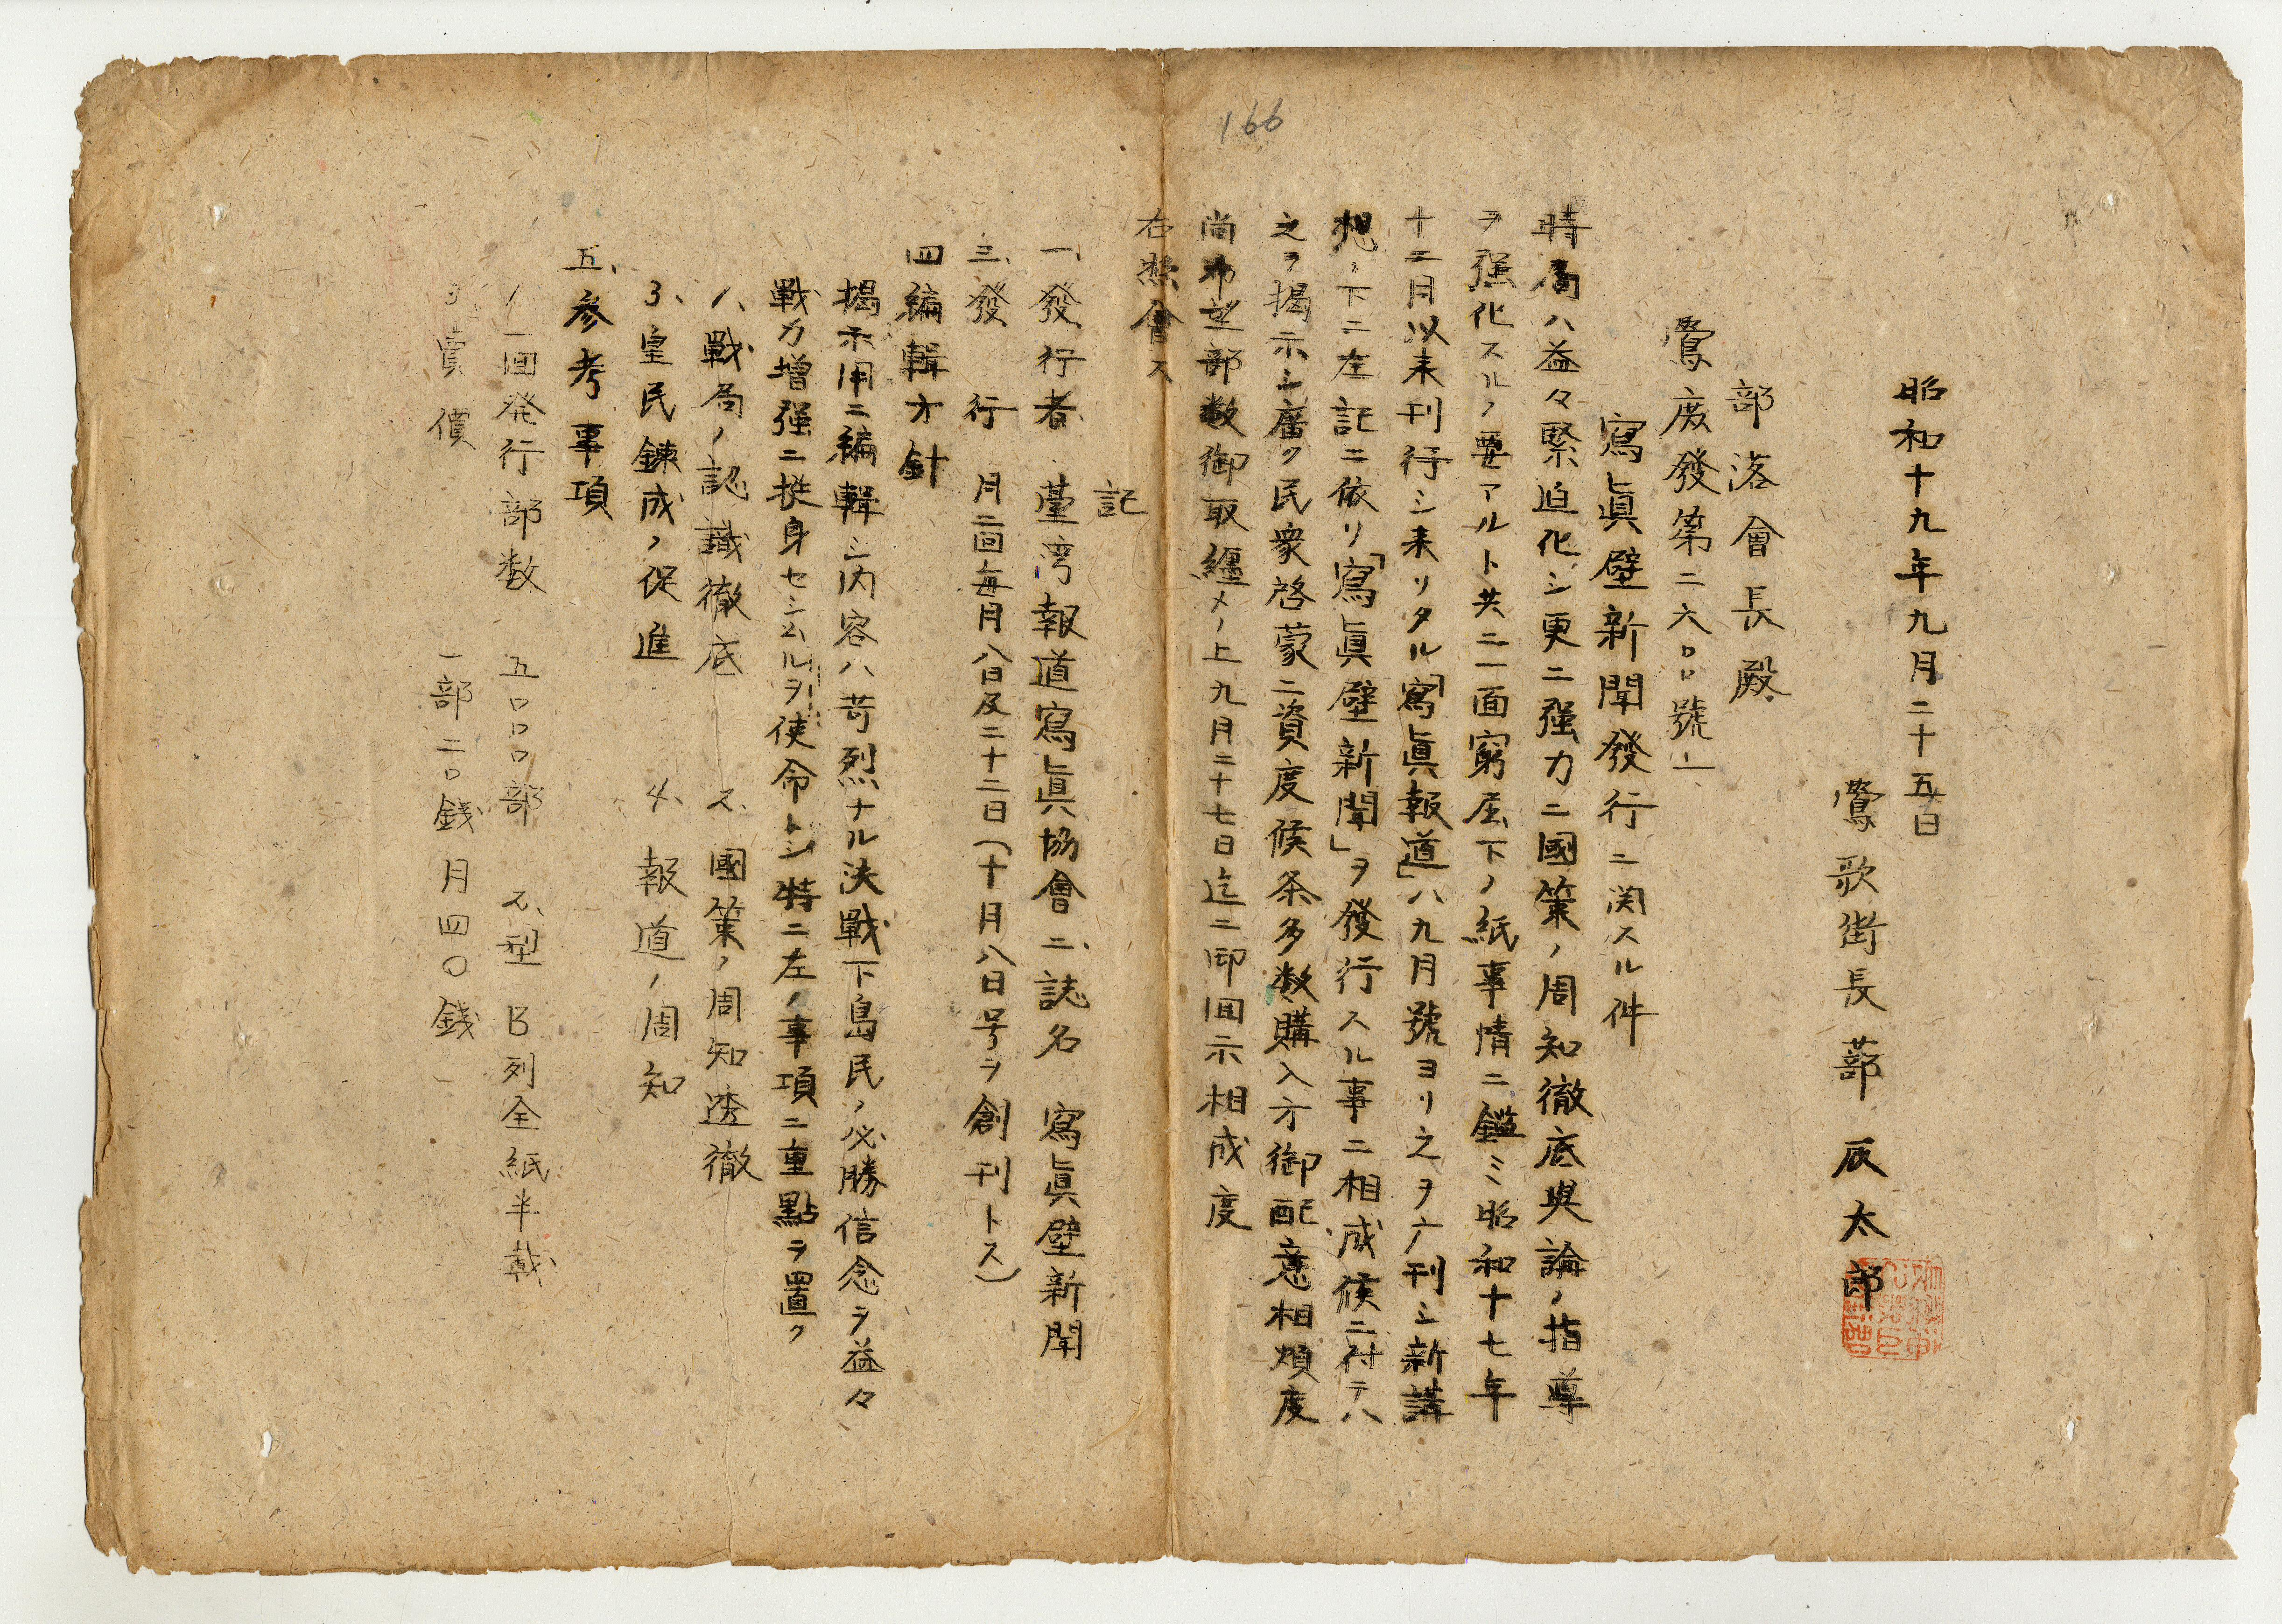 166
昭和十九年九月二十五日
鶯歌街長 蔀 辰太郎
部落會長殿
鶯庶發第二六〇〇號ノ一
寫眞壁新聞發行ニ関スル件
時局ハ益々緊迫化シ更ニ强力ニ國策ノ周知徹底與論ノ指導
ヲ强化スルノ要アルト共ニ一面窮屈下ノ紙事情ニ鑑ミ昭和十七年
十二月以来刊行シ来リタル「寫眞報道」ハ九月號ヨリ之ヲ廃刊シ新構
想ノ下ニ左記ニ依リ「寫眞壁新聞」ヲ發行スル事ニ相成候ニ付テハ
之ヲ揭示シ廣ク民衆啓蒙ニ資度候条多数購入方御配意相煩度
尚希望部数御取纏メノ上九月二十七日迄ニ御回示相成度
右照會ス
記
一、發行者 臺湾報道寫眞協會 二、誌名 寫眞壁新聞
三、發行 月二回每月八日及二十二日(十月八日号ヲ創刊トス)
四編輯方針
揭示用ニ編輯シ内容ハ苛烈ナル決戰下島民ノ必勝信念ヲ益々
戰力增强ニ挺身セシムルヲ使命トシ特ニ左ノ事項ニ重點ヲ置ク
1、戰局ノ認識徹底 2、國策ノ周知透徹
3、皇民鍊成ノ促進 4、報道ノ周知
五、參考事項
1、一回発行部数 五〇〇〇部 2、型 B列全紙半裁
3 賣價 一部二〇錢 月四〇錢